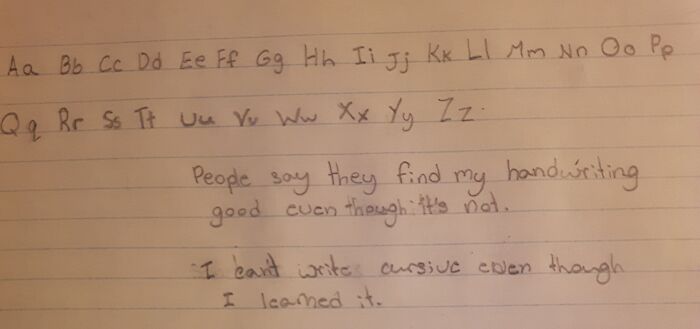 Aa Bb Cc Dd Ee Ff Gg Hh Ii Jj Kk Ll Mm Nn Oo Pp
Qq Rr Ss Tt Uu Vv Ww Xx Yy Zz.
People say they find my handwriting
good even though it's not.
I can't write cursive even though
I learned it.